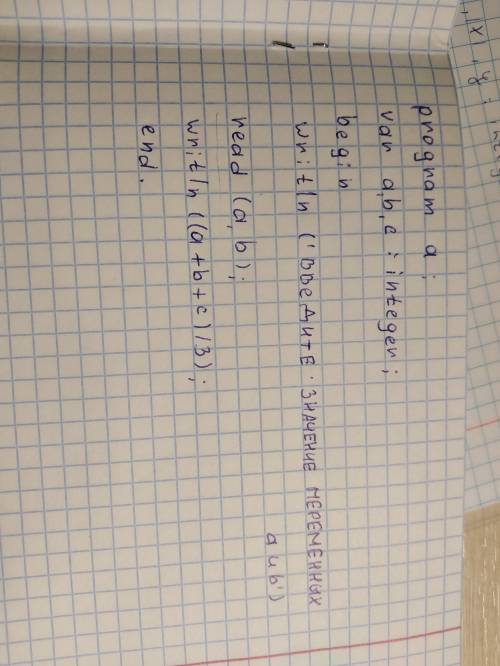 program a;
var a,b,c : integer;
begin
writln ('ВВЕДИТЕ ЗНАЧЕНИЕ ПЕРЕМЕННЫХ
a и b')
read (a,b);
writln ((a+b+c)/3);
end.